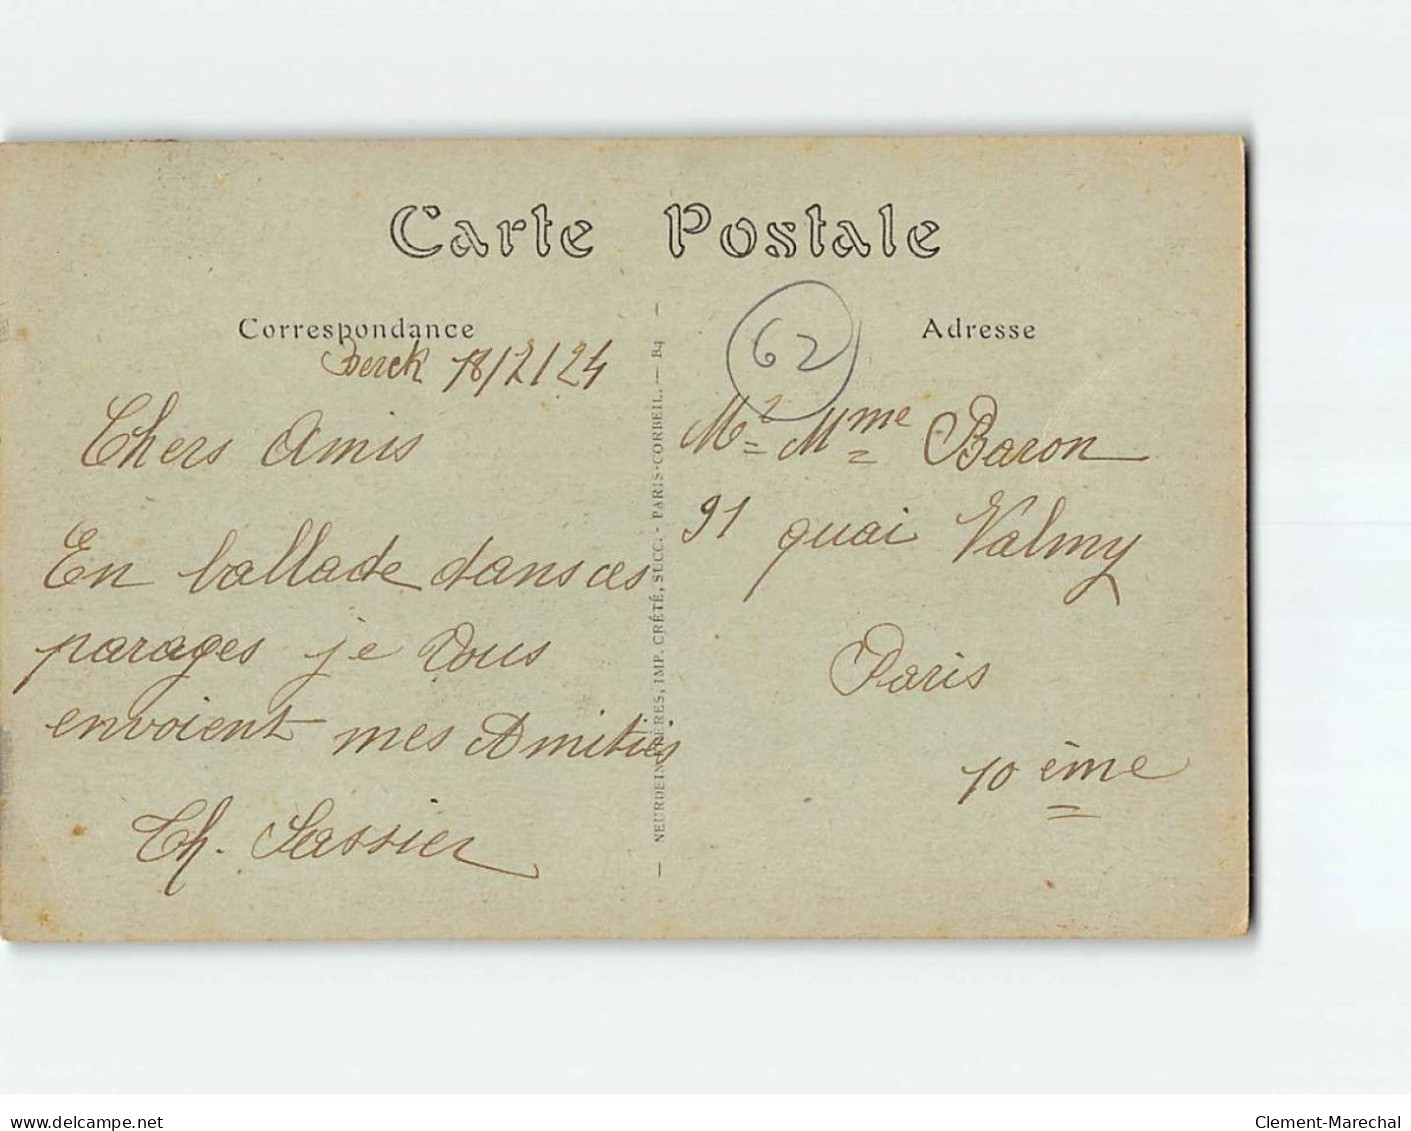 Carte Postale
Correspondance
Berck 18/2/24
Chers Amis
En ballade dans ces
parages je vous
envoient mes Amitiés
Ch. Sassier
NEURDEIN FRÈRES, IMP. CRÉTÉ, SUCC. - PARIS-CORBEIL. — B4
62
Adresse
Mr Mme Baron
91 quai Valmy
Paris
10 ème
www.delcampe.net
Clement-Marechal